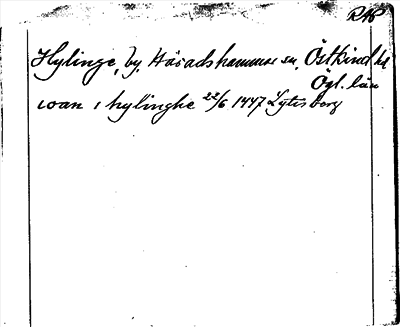 RAP
Hylinge, by, Häradshammar sn, Östkinds hd
Ögl. län
ioan i hylinghe 22/6 1447 Lytisberg